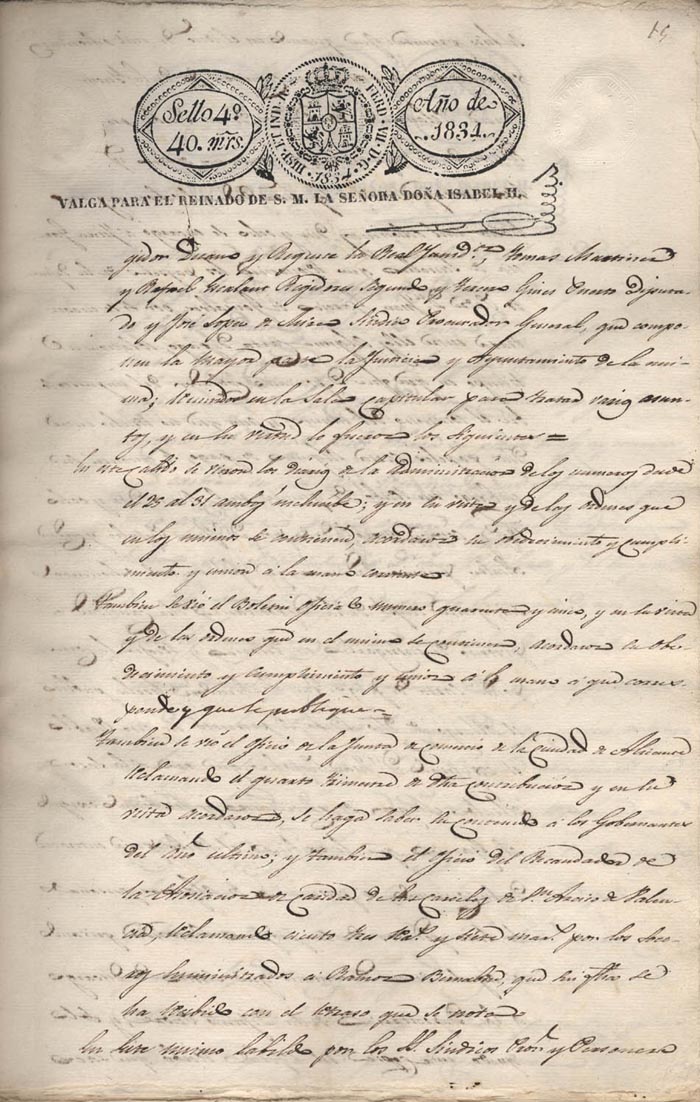 15
Sello 4º
40. mrs.
HISP. ET IND. R. FERD. VII. D. G.
1834
Año de
1834.
VALGA PARA EL REINADO DE S. M. LA SEÑORA DOÑA ISABEL II.
gidor Decano y Regente la Real Jurid.n, Tomas Martinez
y Rafael Regidores Segundo y Tercero Gines Diputa-
do y José Lopez de Sindico Procurador General, que compo-
nen la mayor parte la Justicia y Ayuntamiento de la mis-
ma; reunidos en la Sala Capitular para tratar varios asun-
tos, y en su virtud lo fueron los siguientes =
En este Cabdo se vieron los diarios de la Administracion de los numeros desde
el 25 al 31 ambos inclusibe; y en su vista y de las ordenes que
en los mismos se contienen, acordaron su obedecimiento y cumpli-
miento y union á la mano corriente
Tambien se vió el Boletin oficial numero quarenta y cinco, y en su vista
y de las ordenes que en el mismo se contienen, acordaron su obe-
decimiento y cumplimiento y union á la mano á que corres-
ponde y que se publique =
Tambien se vió el oficio de la Junta de comercio de la Ciudad de Alicante
reclamando el quarto trimestre de dha contribucion y en su
vista acordaron, se haga saber su contenido á los Gobernantes
del año ultimo; y tambien el oficio del Recaudador de
la de Caridad de las Carceles de Sn. de Valen-
cia, reclamando ciento tres rs. y siete mars. por los Socor-
ros suministrados á Ramon que se
ha recibido con el retraso que se nota
En este mismo Cabildo por los SS. Sindicos Pror. y Personero